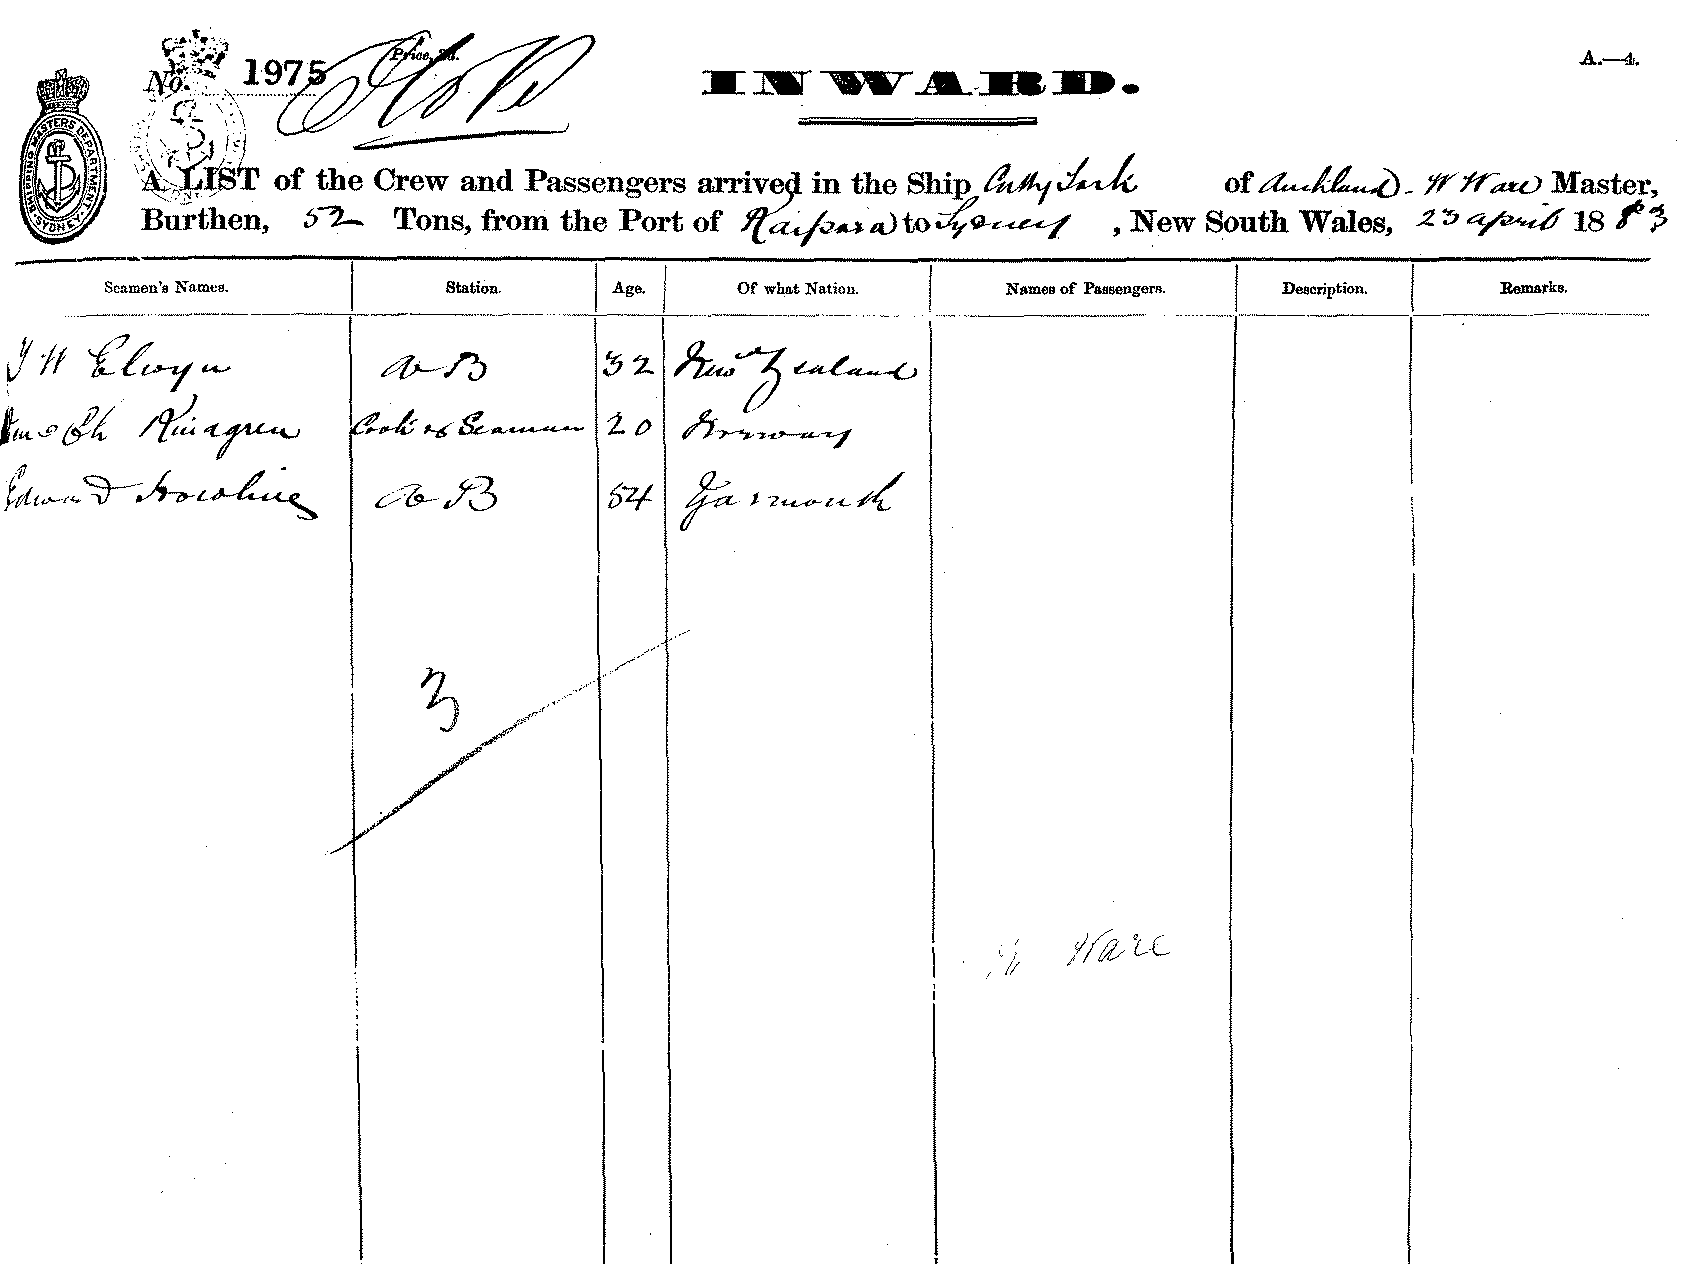 A.—4.
No. 1975
Price, 3d.
INWARD.
SHIPPING MASTERS DEPARTMENT
SYDNEY
A LIST of the Crew and Passengers arrived in the Ship Cutty Sark of Auckland - W Ware Master,
Burthen, 52 Tons, from the Port of Kaipara to Sydney, New South Wales, 23 april 1883
Seamen's Names. Station. Age. Of what Nation. Names of Passengers. Description. Remarks.
W Elwyn AB 32 New Zealand
Cook & Seaman 20 Norway
Edward AB 54 Yarmouth
3
W Ware